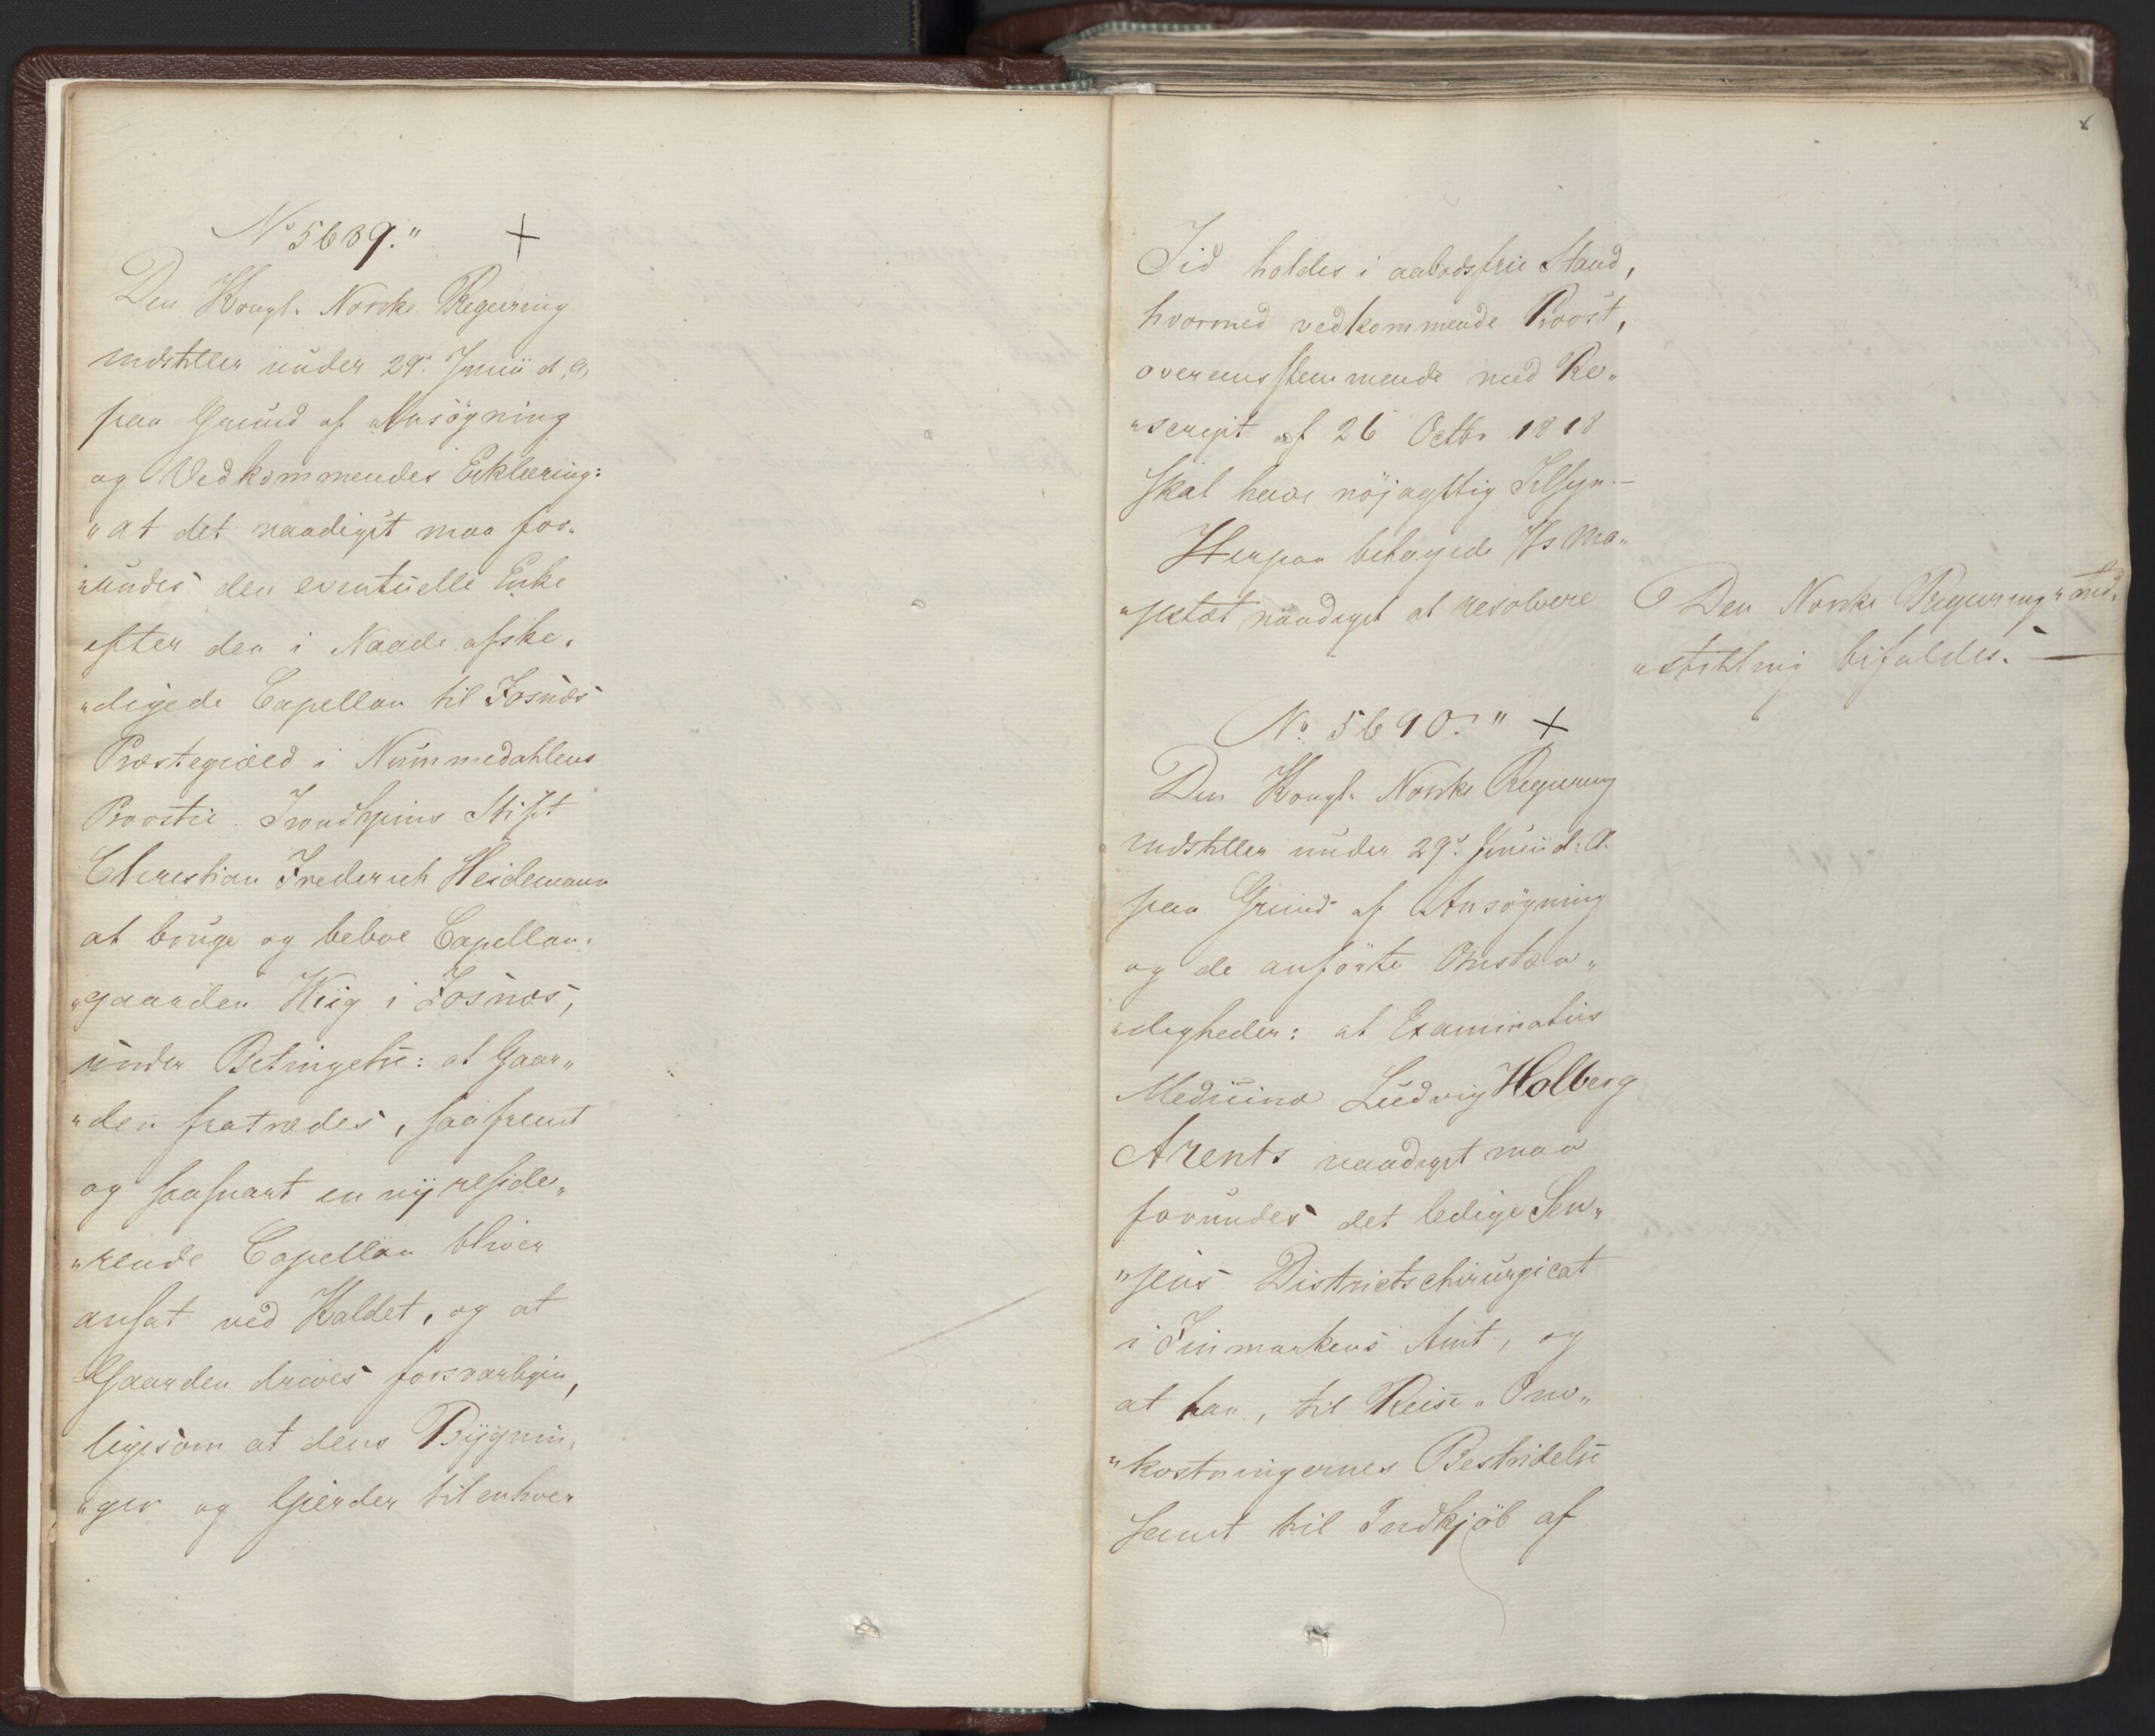 No 5689." +
Den Kongl. Norske Regiering
indstiller under 29de Junii d. A.
paa Grund af Ansögning
og Vedkommendes Erklæring:
"at det naadigst maa for„
„undes den eventuelle Enke
efter den i Naade afske„
„digede Capellan til Fosnæs
Præstegiæld i Nummedahlens
Provstie Trondhjems Stift
Christian Frederich Heidemann
at bruge og beboe Capellan„
„gaarden Wiig i Fosnæs,
under Betingelse: at Gaar„
„den fratrædes, saafremt
og saasnart en ny reside„
„rende Capellan bliver
ansat ved Kaldet, og at
Gaarden drives forsvarligen,
ligesom at dens Bygnin„
„ger og Gierder til enhver
Tid holdes i aabodsfrie Stand,
hvormed vedkommende Provst,
overensstemmende med Re„
„script af 26 Octbr 1818
skal have nöjagtig Tilsyn.—
Herpaa behagede Hs Ma„
„jestæt naadigst at resolvere
Den Norske Regierings Ind„
„stilling bifaldes.—
No. 5690." +
Den Kongl. Norske Regiering
indstiller under 29de Junii d: A.
paa Grund af Ansögning
og de anförte Omstæn„
„digheder: at Examinatus
Medicinæ Ludvig Holberg
Arents naadigst maa
forundes det ledige Sen„
„jens Districtschirurgicat
i Finmarkens Amt, og
at han, til Reise„Om„
„kostningernes Bestridelse
samt til Indkjöb af